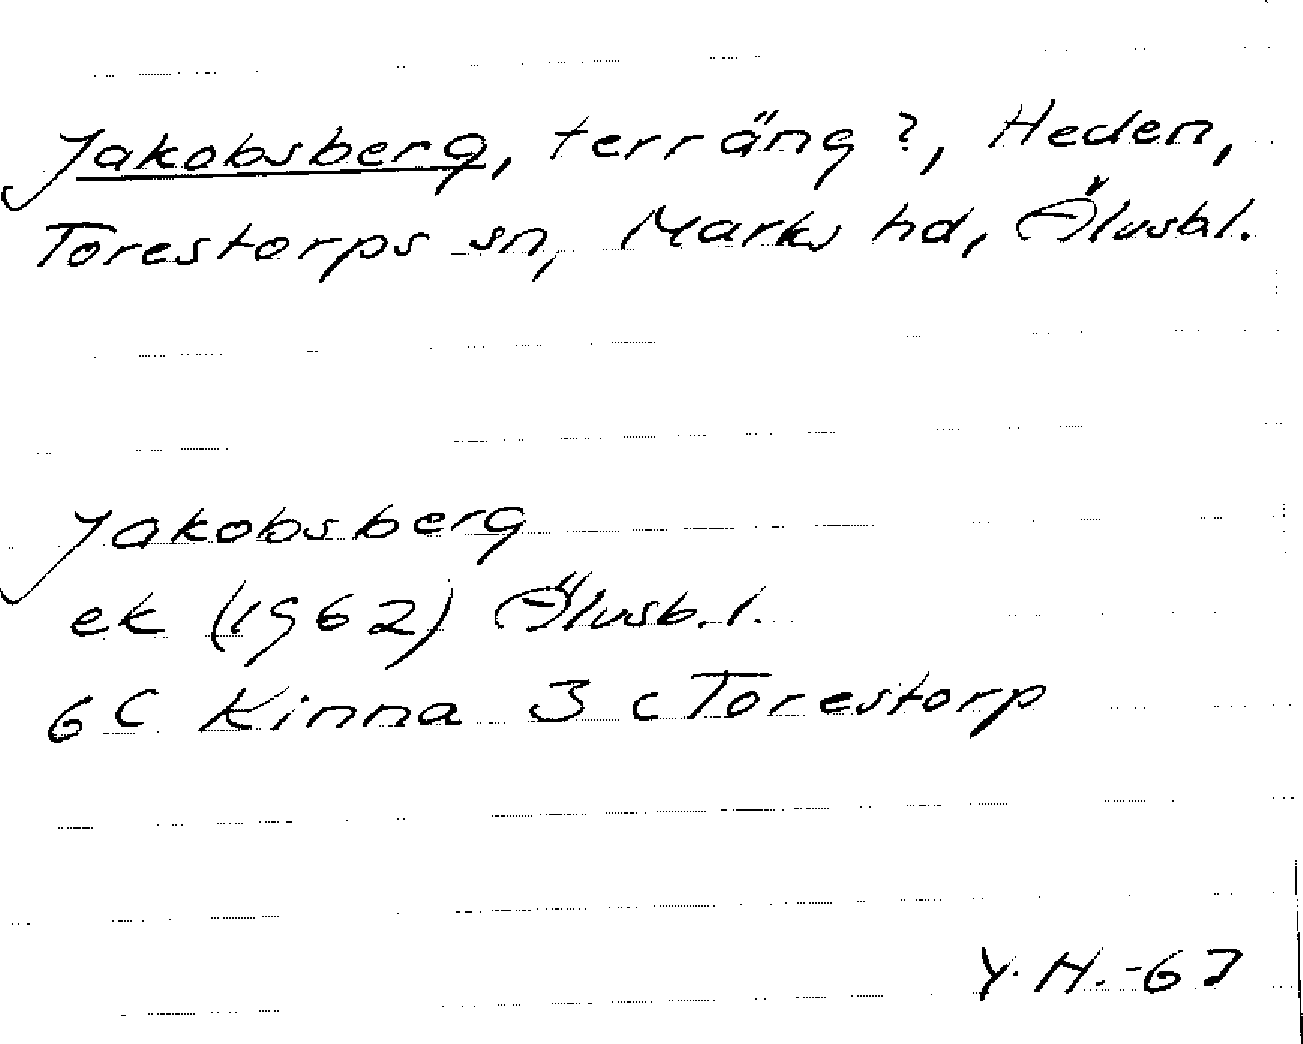 Jakobsberg, terräng?, Heden,
Torestorps sn, Marks hd, Älvsbl.
Jakobsberg
ek (1962) Älvsb. l.
6C Kinna 3 c Torestorp
Y. H. -67